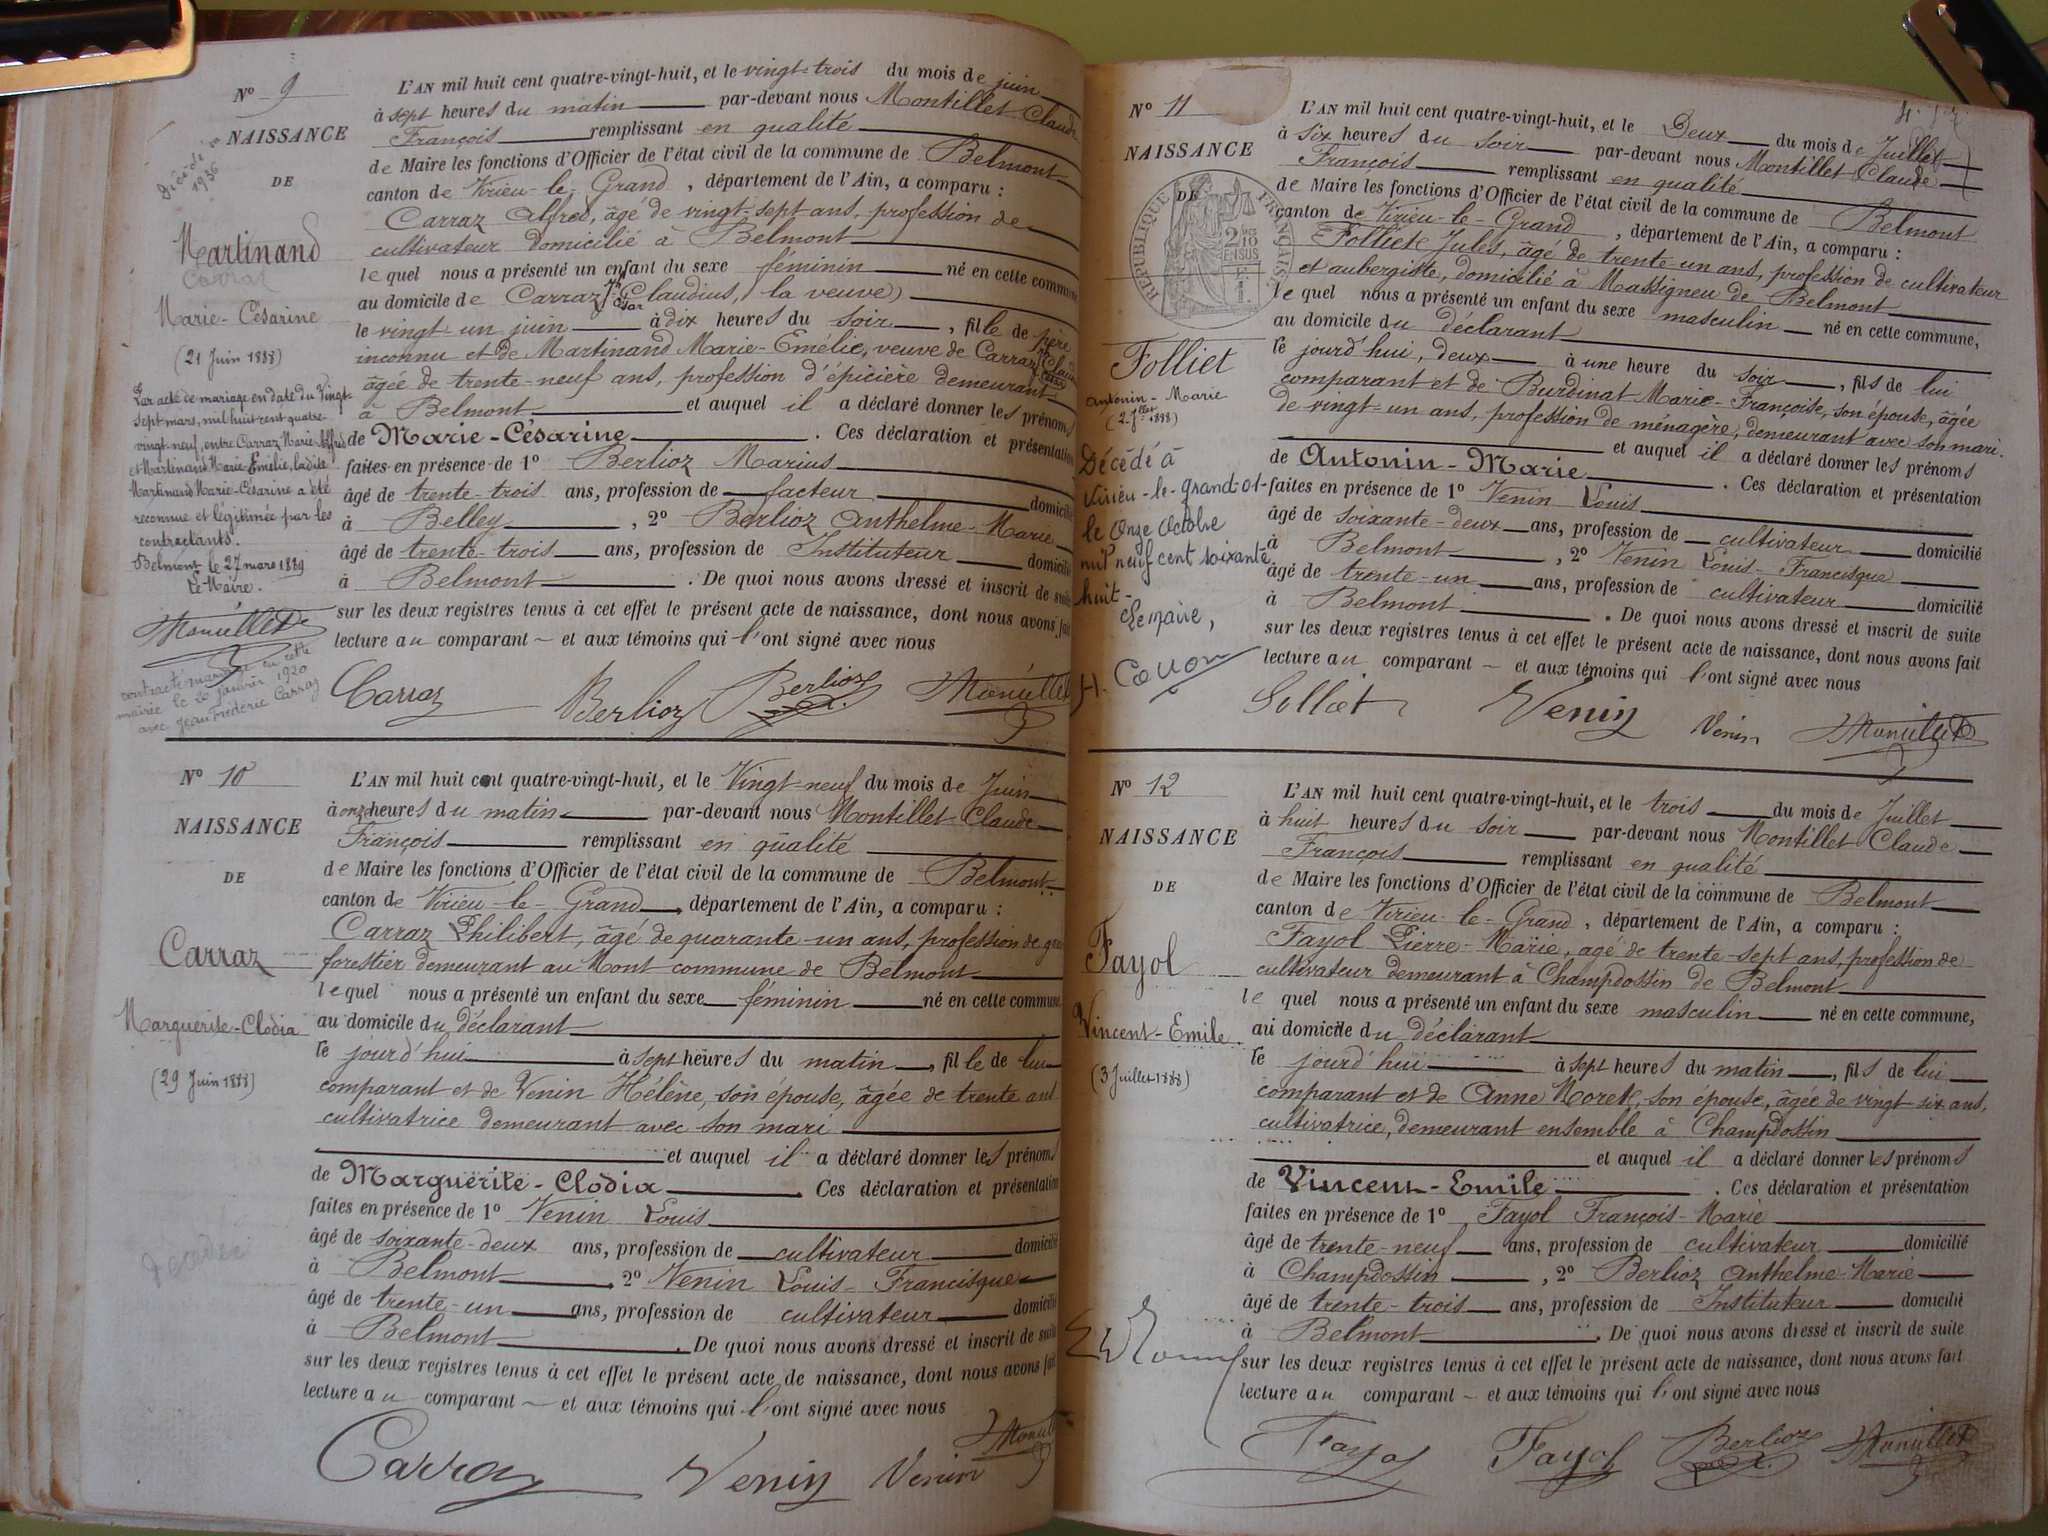 Nº 9
NAISSANCE
DE
Décédée
1936
Martinand
Carraz
Marie-Césarine
(21 Juin 1888)
Par acte de mariage en date du Vingt-
sept mars, mil huit cent quatre-
vingt neuf, entre Carraz Marie Alfred
et Martinand Marie Emélie, ladite
Martinand Marie-Césarine a été
reconnue et légitimée par les
contractants.
Belmont le 27 mars 1889
Le Maire.
Montillet
contracté mariage en cette
mairie le 20 janvier 1920
avec Jean Frédéric Carraz
L'AN mil huit cent quatre-vingt-huit, et le vingt-trois du mois de juin
à sept heures du matin par-devant nous Montillet Claude
François remplissant en qualité
de Maire les fonctions d'Officier de l'état civil de la commune de Belmont
canton de Virieu-le-Grand, département de l'Ain, a comparu :
Carraz Alfred, âgé de vingt-sept ans, profession de
cultivateur domicilié à Belmont
lequel nous a présenté un enfant du sexe féminin né en cette commune
au domicile de Carraz Claudius, la veuve)
le vingt-un juin à dix heures du soir, fille de père
inconnu et de Martinand Marie-Emélie, veuve de Carraz
âgée de trente-neuf ans, profession d'épicière demeurant
à Belmont et auquel il a déclaré donner les prénoms
de Marie-Césarine. Ces déclaration et présentation
faites en présence de 1º Berlioz Marius
âgé de trente-trois ans, profession de facteur domicilié
à Belley, 2º Berlioz Anthelme-Marie
âgé de trente-trois ans, profession de Instituteur domicilié
à Belmont. De quoi nous avons dressé et inscrit de suite
sur les deux registres tenus à cet effet le présent acte de naissance, dont nous avons fait
lecture au comparant et aux témoins qui l'ont signé avec nous
Carraz Berlioz Berlioz Montillet
Nº 10
NAISSANCE
DE
Carraz
Marguerite-Clodia
(29 Juin 1888)
Décédée
L'AN mil huit cent quatre-vingt-huit, et le Vingt-neuf du mois de Juin
à onze heures du matin par-devant nous Montillet Claude
François remplissant en qualité
de Maire les fonctions d'Officier de l'état civil de la commune de Belmont
canton de Virieu-le-Grand, département de l'Ain, a comparu :
Carraz Philibert, âgé de quarante-un ans, profession de
forestier demeurant au Mont commune de Belmont
lequel nous a présenté un enfant du sexe féminin né en cette commune
au domicile du déclarant
le jourd'hui à sept heures du matin, fille de lui
comparant et de Venin Hélène, son épouse, âgée de trente ans
cultivatrice demeurant avec son mari
et auquel il a déclaré donner les prénoms
de Marguerite-Clodia. Ces déclaration et présentation
faites en présence de 1º Venin Louis
âgé de soixante-deux ans, profession de cultivateur domicilié
à Belmont 2º Venin Louis-Francisque
âgé de trente-un ans, profession de cultivateur domicilié
à Belmont. De quoi nous avons dressé et inscrit de suite
sur les deux registres tenus à cet effet le présent acte de naissance, dont nous avons fait
lecture au comparant et aux témoins qui l'ont signé avec nous
Carraz Venin Venin Montillet
Nº 11
NAISSANCE
DE
RÉPUBLIQUE FRANÇAISE
2 10
EN SUS
Folliet
Antonin-Marie
(2 Jllet 1888)
Décédé à
Virieu-le-Grand-01-
le Onze Octobre
mil neuf cent soixante
huit-
Le maire,
L'AN mil huit cent quatre-vingt-huit, et le Deux du mois de Juillet
à six heures du soir par-devant nous Montillet Claude
François remplissant en qualité
de Maire les fonctions d'Officier de l'état civil de la commune de Belmont
canton de Virieu-le-Grand, département de l'Ain, a comparu :
Folliet Jules, âgé de trente un ans, profession de cultivateur
et aubergiste, domicilié à Massigneu de Belmont
lequel nous a présenté un enfant du sexe masculin né en cette commune,
au domicile du déclarant
le jourd'hui, deux à une heure du soir, fils de lui
comparant et de Burdinat Marie-Françoise, son épouse, âgée
de vingt-un ans, profession de ménagère, demeurant avec son mari.
et auquel il a déclaré donner les prénoms
de Antonin-Marie. Ces déclaration et présentation
faites en présence de 1º Venin Louis
âgé de soixante-deux ans, profession de cultivateur domicilié
à Belmont, 2º Venin Louis-Francisque
âgé de trente-un ans, profession de cultivateur domicilié
à Belmont. De quoi nous avons dressé et inscrit de suite
sur les deux registres tenus à cet effet le présent acte de naissance, dont nous avons fait
lecture au comparant et aux témoins qui l'ont signé avec nous
Folliet Venin Venin Montillet
Nº 12
NAISSANCE
DE
Fayol
Vincent-Emile
(3 Juillet 1888)
L'AN mil huit cent quatre-vingt-huit, et le trois du mois de Juillet
à huit heures du soir par-devant nous Montillet Claude
François remplissant en qualité
de Maire les fonctions d'Officier de l'état civil de la commune de Belmont
canton de Virieu-le-Grand, département de l'Ain, a comparu :
Fayol Pierre-Marie, âgé de trente-sept ans, profession de
cultivateur demeurant à Champdossin de Belmont
le quel nous a présenté un enfant du sexe masculin né en cette commune,
au domicile du déclarant
le jourd'hui à sept heures du matin, fils de lui
comparant et de Anne Morett, son épouse, âgée de vingt-six ans,
cultivatrice, demeurant ensemble à Champdossin
et auquel il a déclaré donner les prénoms
de Vincent-Emile. Ces déclaration et présentation
faites en présence de 1º Fayol François-Marie
âgé de trente-neuf ans, profession de cultivateur domicilié
à Champdossin, 2º Berlioz Anthelme-Marie
âgé de trente-trois ans, profession de Instituteur domicilié
à Belmont. De quoi nous avons dressé et inscrit de suite
sur les deux registres tenus à cet effet le présent acte de naissance, dont nous avons fait
lecture au comparant et aux témoins qui l'ont signé avec nous
Fayol Fayol Berlioz Montillet